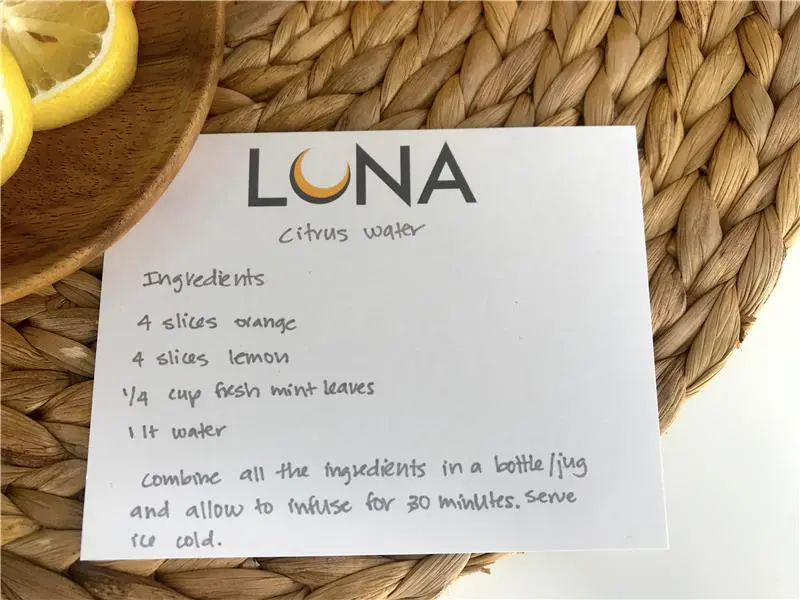 LUNA
citrus water
Ingredients
4 slices orange
4 slices lemon
1/4 cup fresh mint leaves
1 lt water
combine all the ingredients in a bottle/jug
and allow to infuse for 30 minutes. Serve
ice cold.